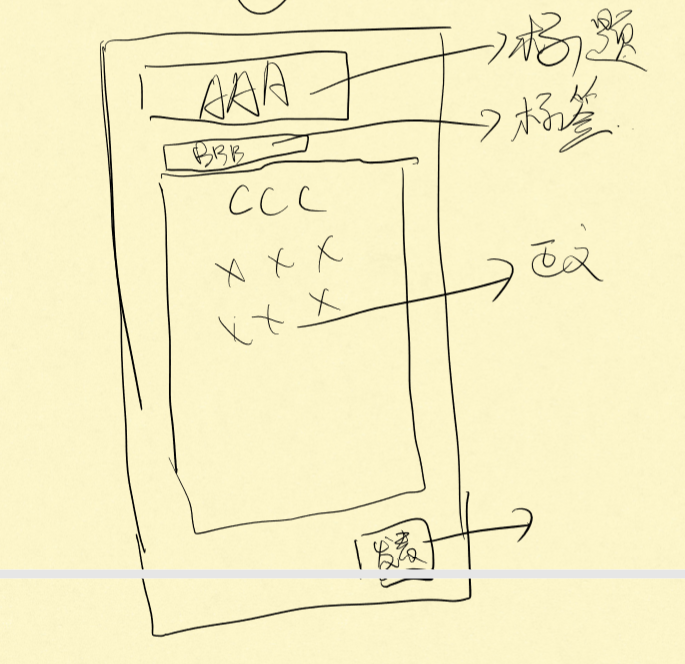 AAA
标题
BBB
标签
CCC
XXX
XXX
正文
发表